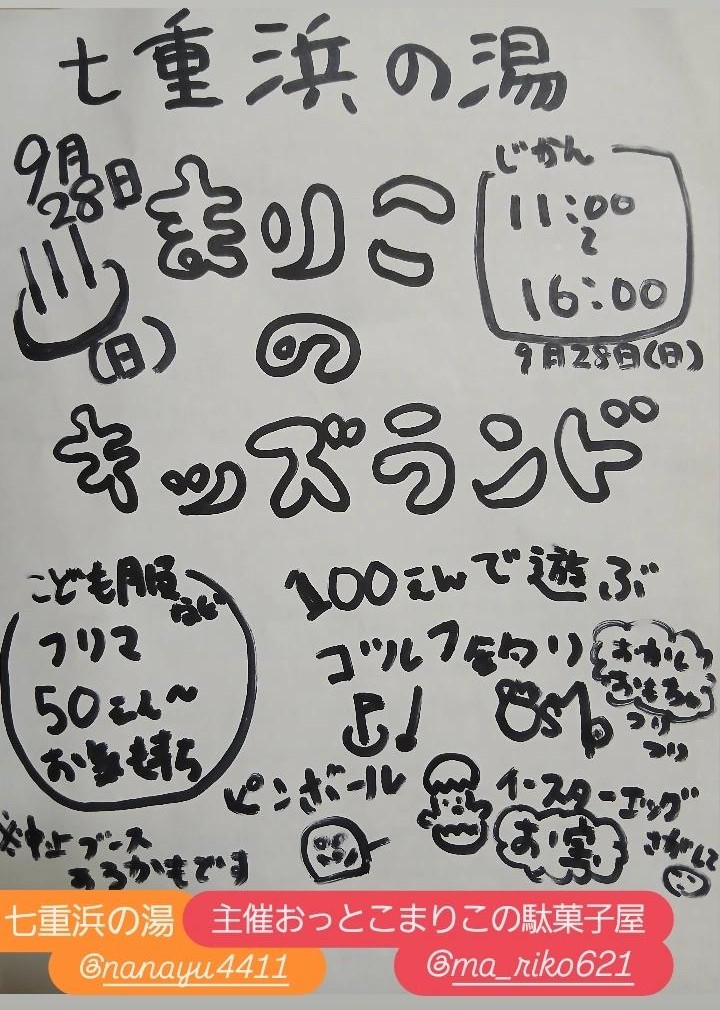 七重浜の湯
9月
28日
(日)
まりこ
の
キッズランド
じかん
11:00
〜
16:00
9月28日(日)
こども服
など
フリマ
50えん〜
お気持ち
100えんで遊ぶ
ゴルフ
釣り
おかし
おもちゃ
つり
つり
ピンボール
イースターエッグ
お宝
さがして
※中止ブース
あるかもです
七重浜の湯
@nanayu4411
主催おっとこまりこの駄菓子屋
@ma_riko621